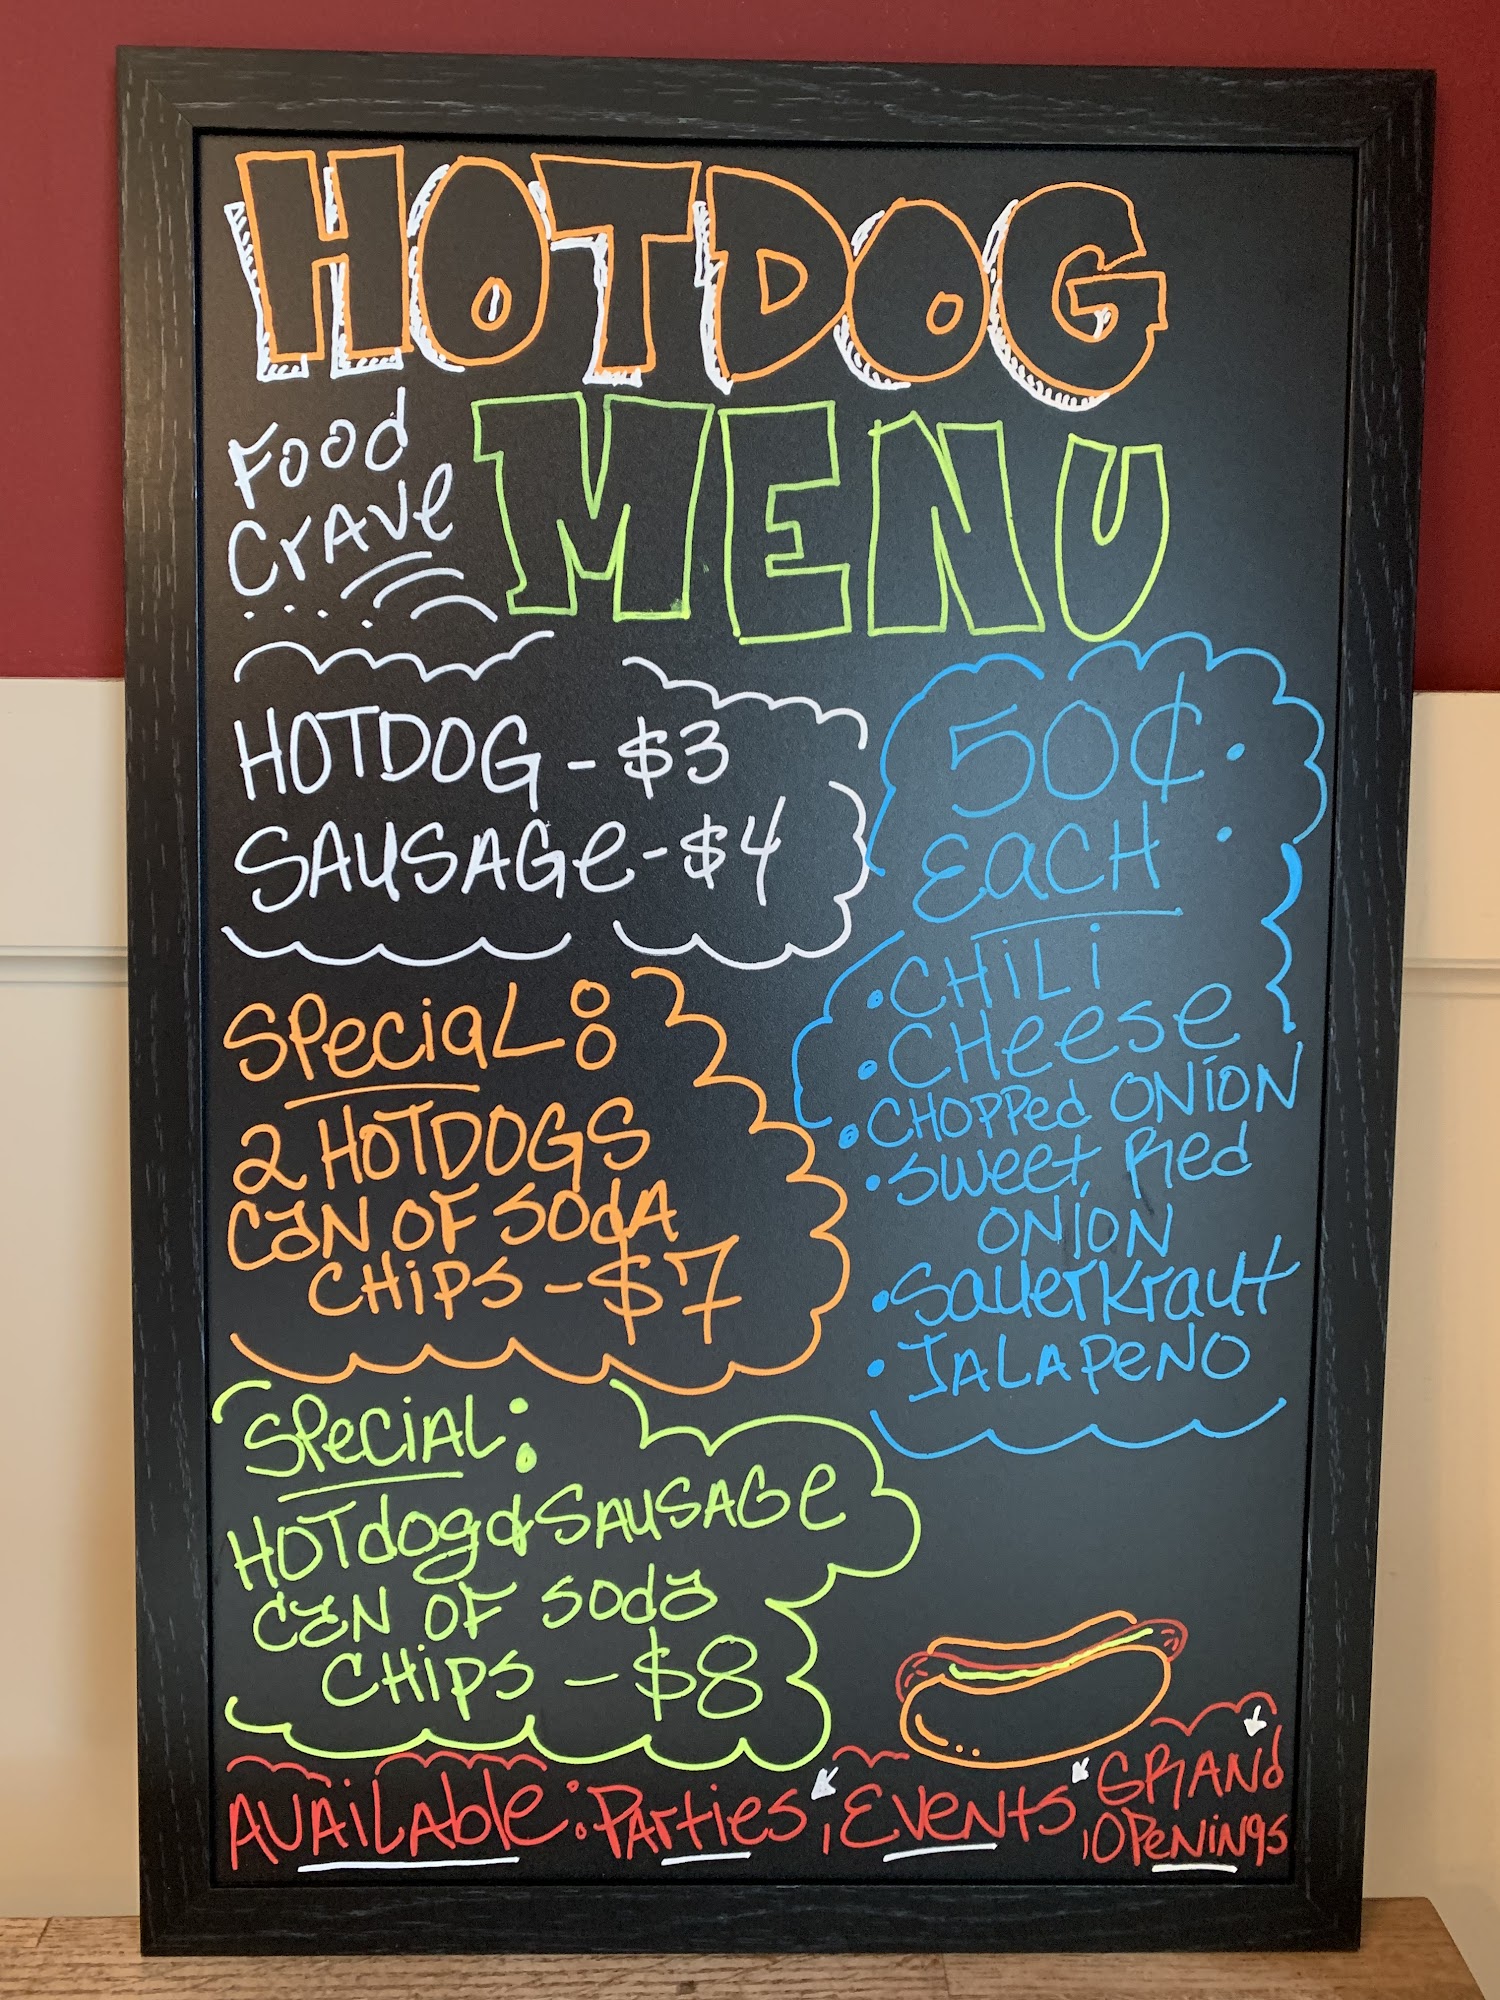 HOTDOG
MENU
FOOD
CRAVE
HOTDOG - $3
SAUSAGE - $4
SPECIAL:
2 HOTDOGS
CAN OF SODA
CHIPS - $7
SPECIAL:
HOTdog & SAUSAGE
CAN OF SODA
CHIPS - $8
50¢
EACH
• CHILI
• CHEESE
• CHOPPED ONION
• SWEET, RED
ONION
• SAUERKRAUT
• JALAPENO
AVAILABLE: PARTIES, EVENTS, GRAND
OPENINGS